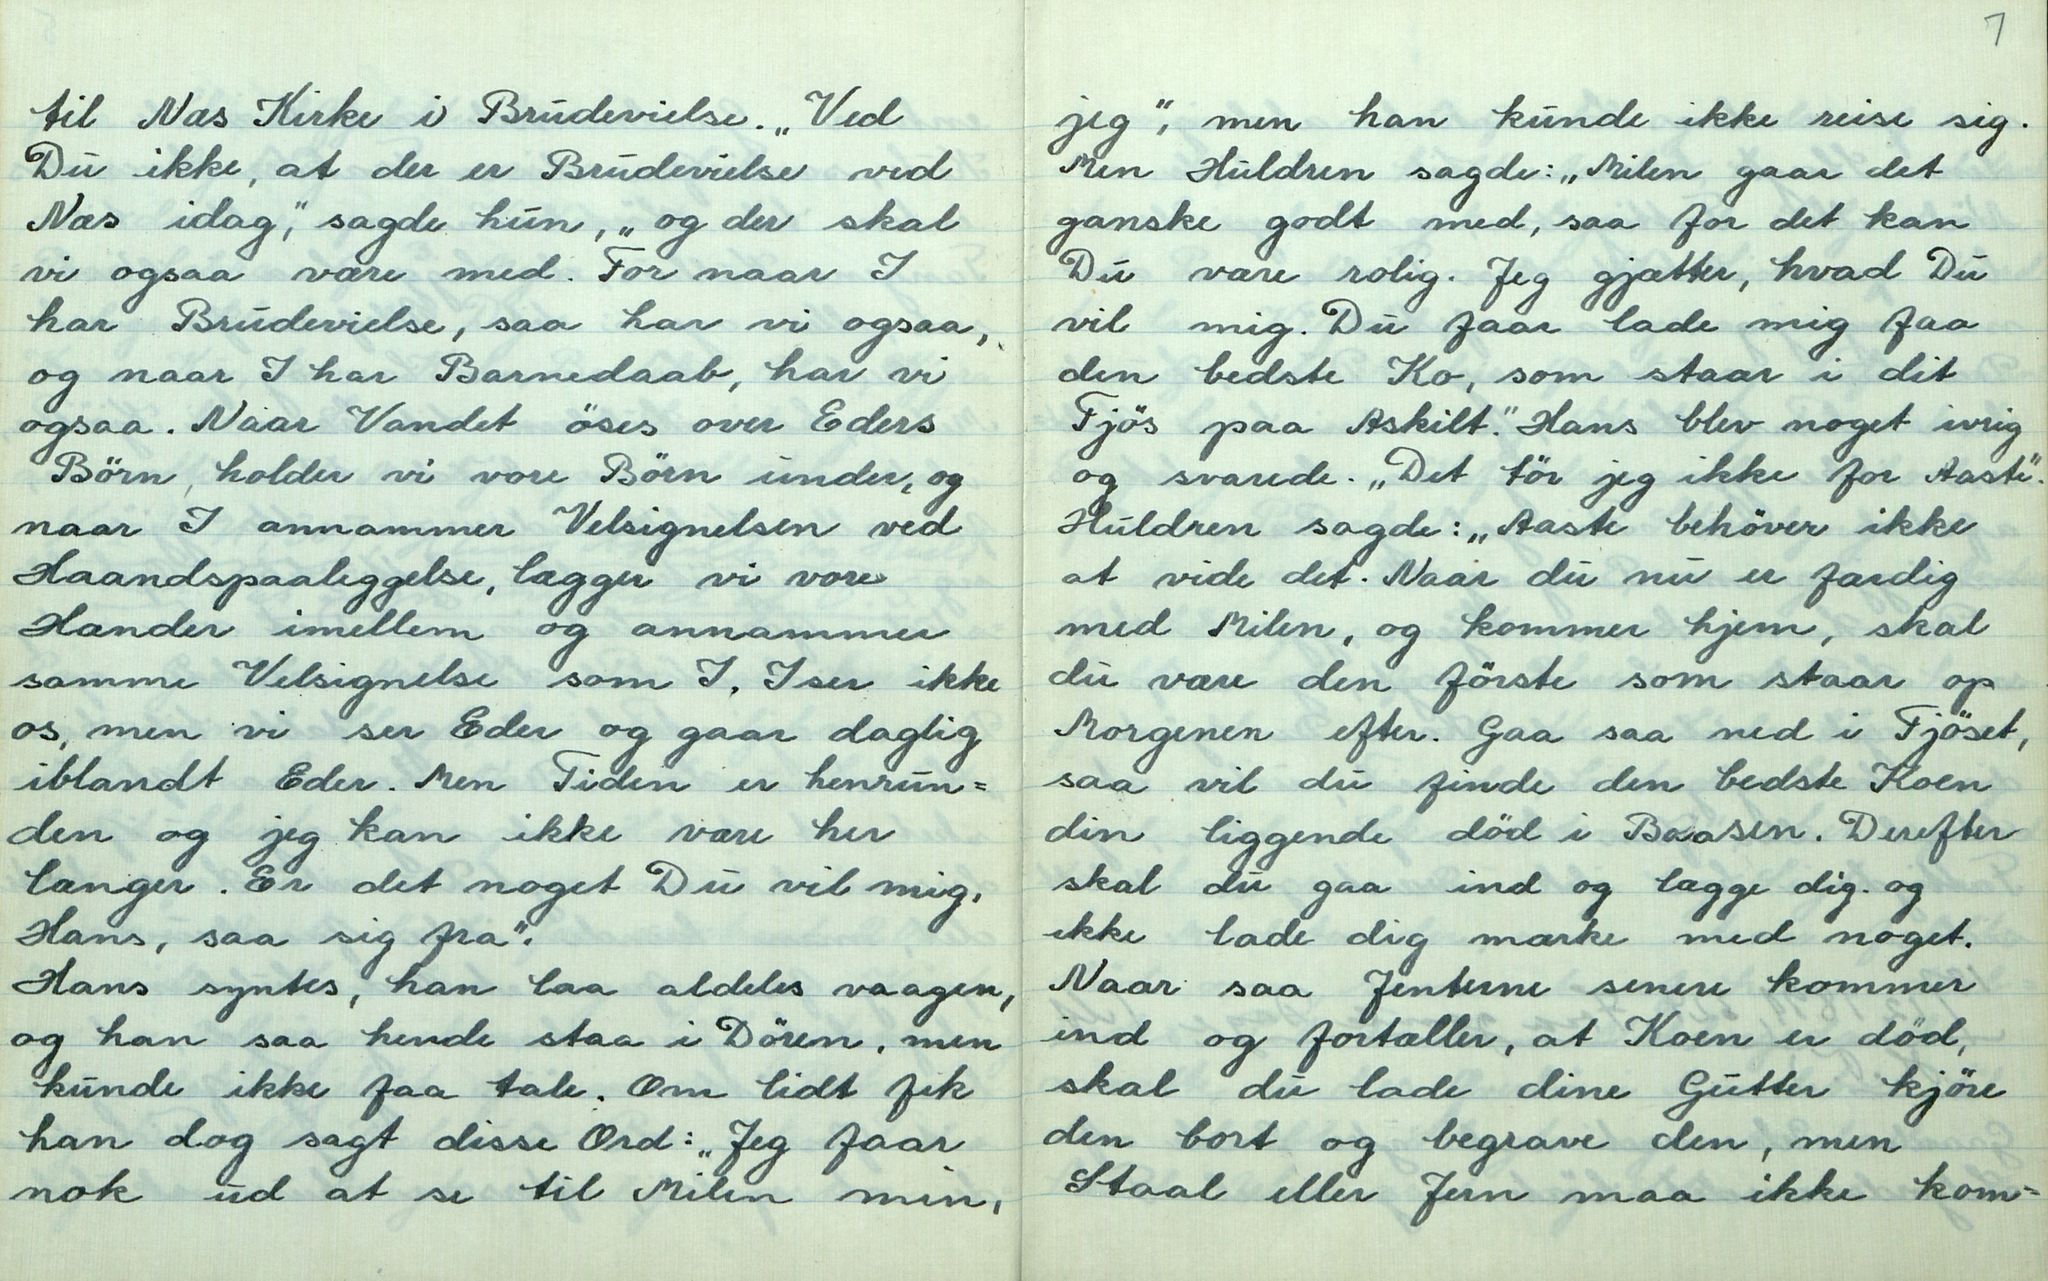 til Næs Kirke i Brudevielse. „Ved
Du ikke, at der er Brudevielse ved
Næs idag", sagde hun, „og der skal
vi ogsaa være med. For naar I
har Brudevielse, saa har vi ogsaa,
og naar I har Barnedaab, har vi
ogsaa. Naar Vandet öses over Eders
Börn, holder vi vore Börn under, og
naar I annammer Velsignelsen ved
Haandspaaleggelse, lægger vi vore
Hænder imellem og annammer
samme Velsignelse som I. I ser ikke
os, men vi ser Eder og gaar daglig
iblandt Eder. Men Tiden er henrun=
den og jeg kan ikke være her
længer. Er det noget Du vil mig,
Hans, saa sig fra".
Hans syntes, han laa aldeles vaagen,
og han saa hende staa i Dören, men
kunde ikke faa tale. Om lidt fik
han dog sagt disse Ord: „Jeg faar
nok ud at se til Milen min,
7
jeg", men han kunde ikke reise sig.
Men Huldren sagde: „Milen gaar det
ganske godt med, saa for det kan
Du være rolig. Jeg gjætter, hvad Du
vil mig. Du faar lade mig faa
den bedste Ko, som staar i dit
Fjös paa Askilt." Hans blev noget ivrig
og svarede. „Det tör jeg ikke for Aaste".
Huldren sagde: „Aaste behöver ikke
at vide det. Naar du nu er færdig
med Milen, og kommer hjem, skal
du være den förste som staar op
Morgenen efter. Gaa saa ned i Fjöset,
saa vil du finde den bedste Koen
din liggende död i Baasen. Derefter
skal du gaa ind og lægge dig. og
ikke lade dig mærke med noget.
Naar saa Jenterne senere kommer
ind og fortæller, at Koen er död,
skal du lade dine Gutter kjöre
den bort og begrave den, men
Staal eller Jern maa ikke kom=